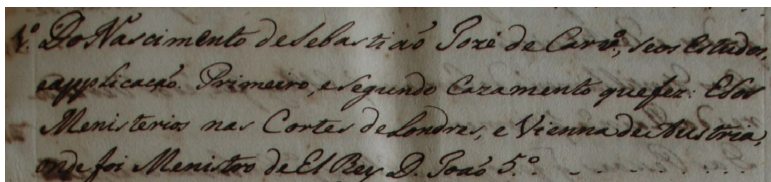 1º. Do Nascimento de Sebastiaõ Jozé de Carvº., seos Estados,
eapplicaçaõ. Primeiro, e segundo Cazamento que fez: E Sos
Menisterios nas Cortes de Londres, e Vienna de Austria,
onde foi Menistro de El Rey D. Joaõ 5.º